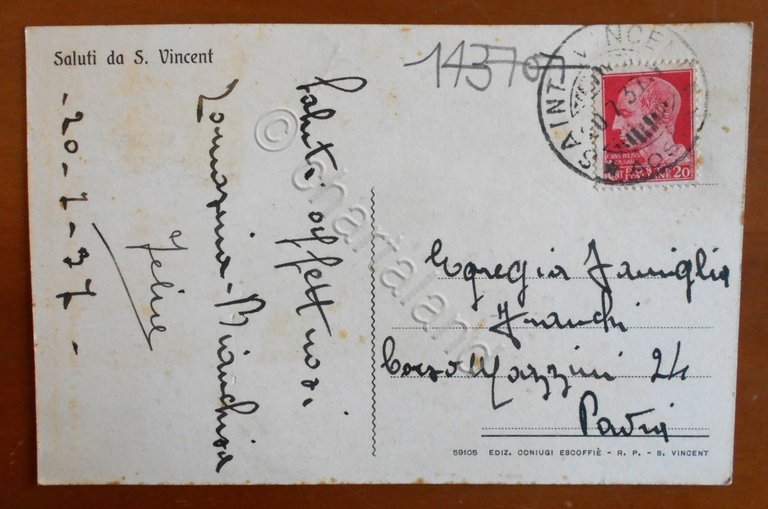 Saluti da S. Vincent
14370
SAINT VINCENT
20.7.37
20
Saluti affettuosi
Tomasina - Bianchina
Felice
- 20-7-37 -
Egregia Famiglia
Franchi
Corso Mazzini 24
Pavia
59105 EDIZ. CONIUGI ESCOFFIÈ - R. P. - S. VINCENT
© chartaland